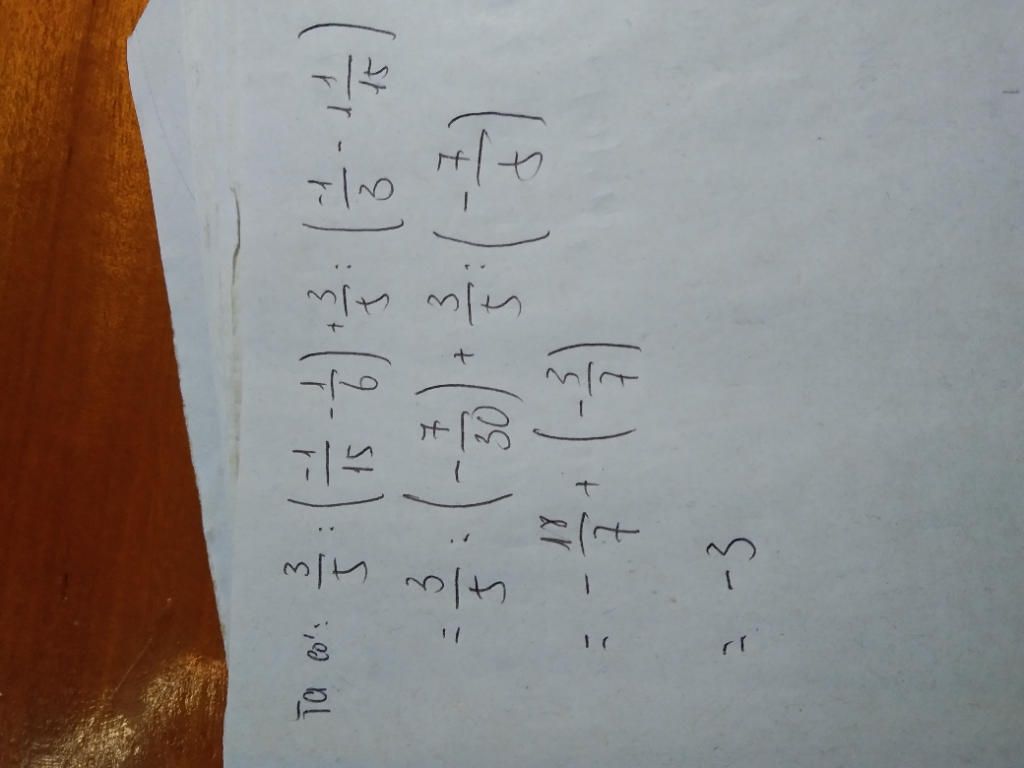 Ta có: 3/5 : (-1/15 - 1/6) + 3/5 : (-1/3 - 1 1/15)
= 3/5 : (-7/30) + 3/5 : (-7/5)
= -18/7 + (-3/7)
= -3